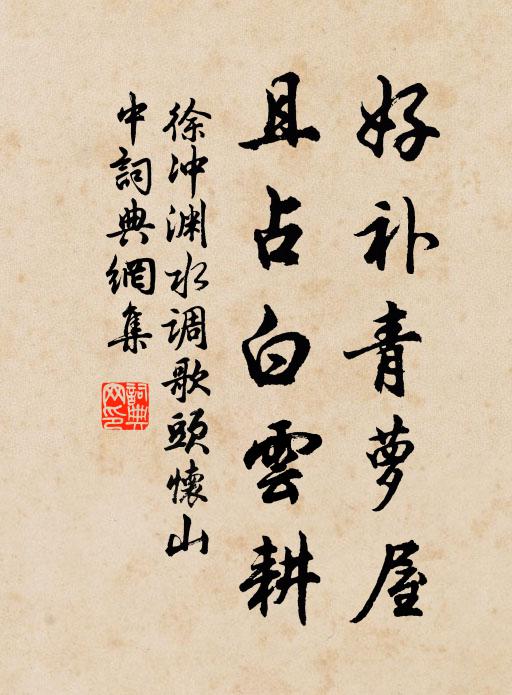 好补青萝屋
且占白雲耕
徐冲渊水调歌頭懷山
中詞典網集
詞典网印